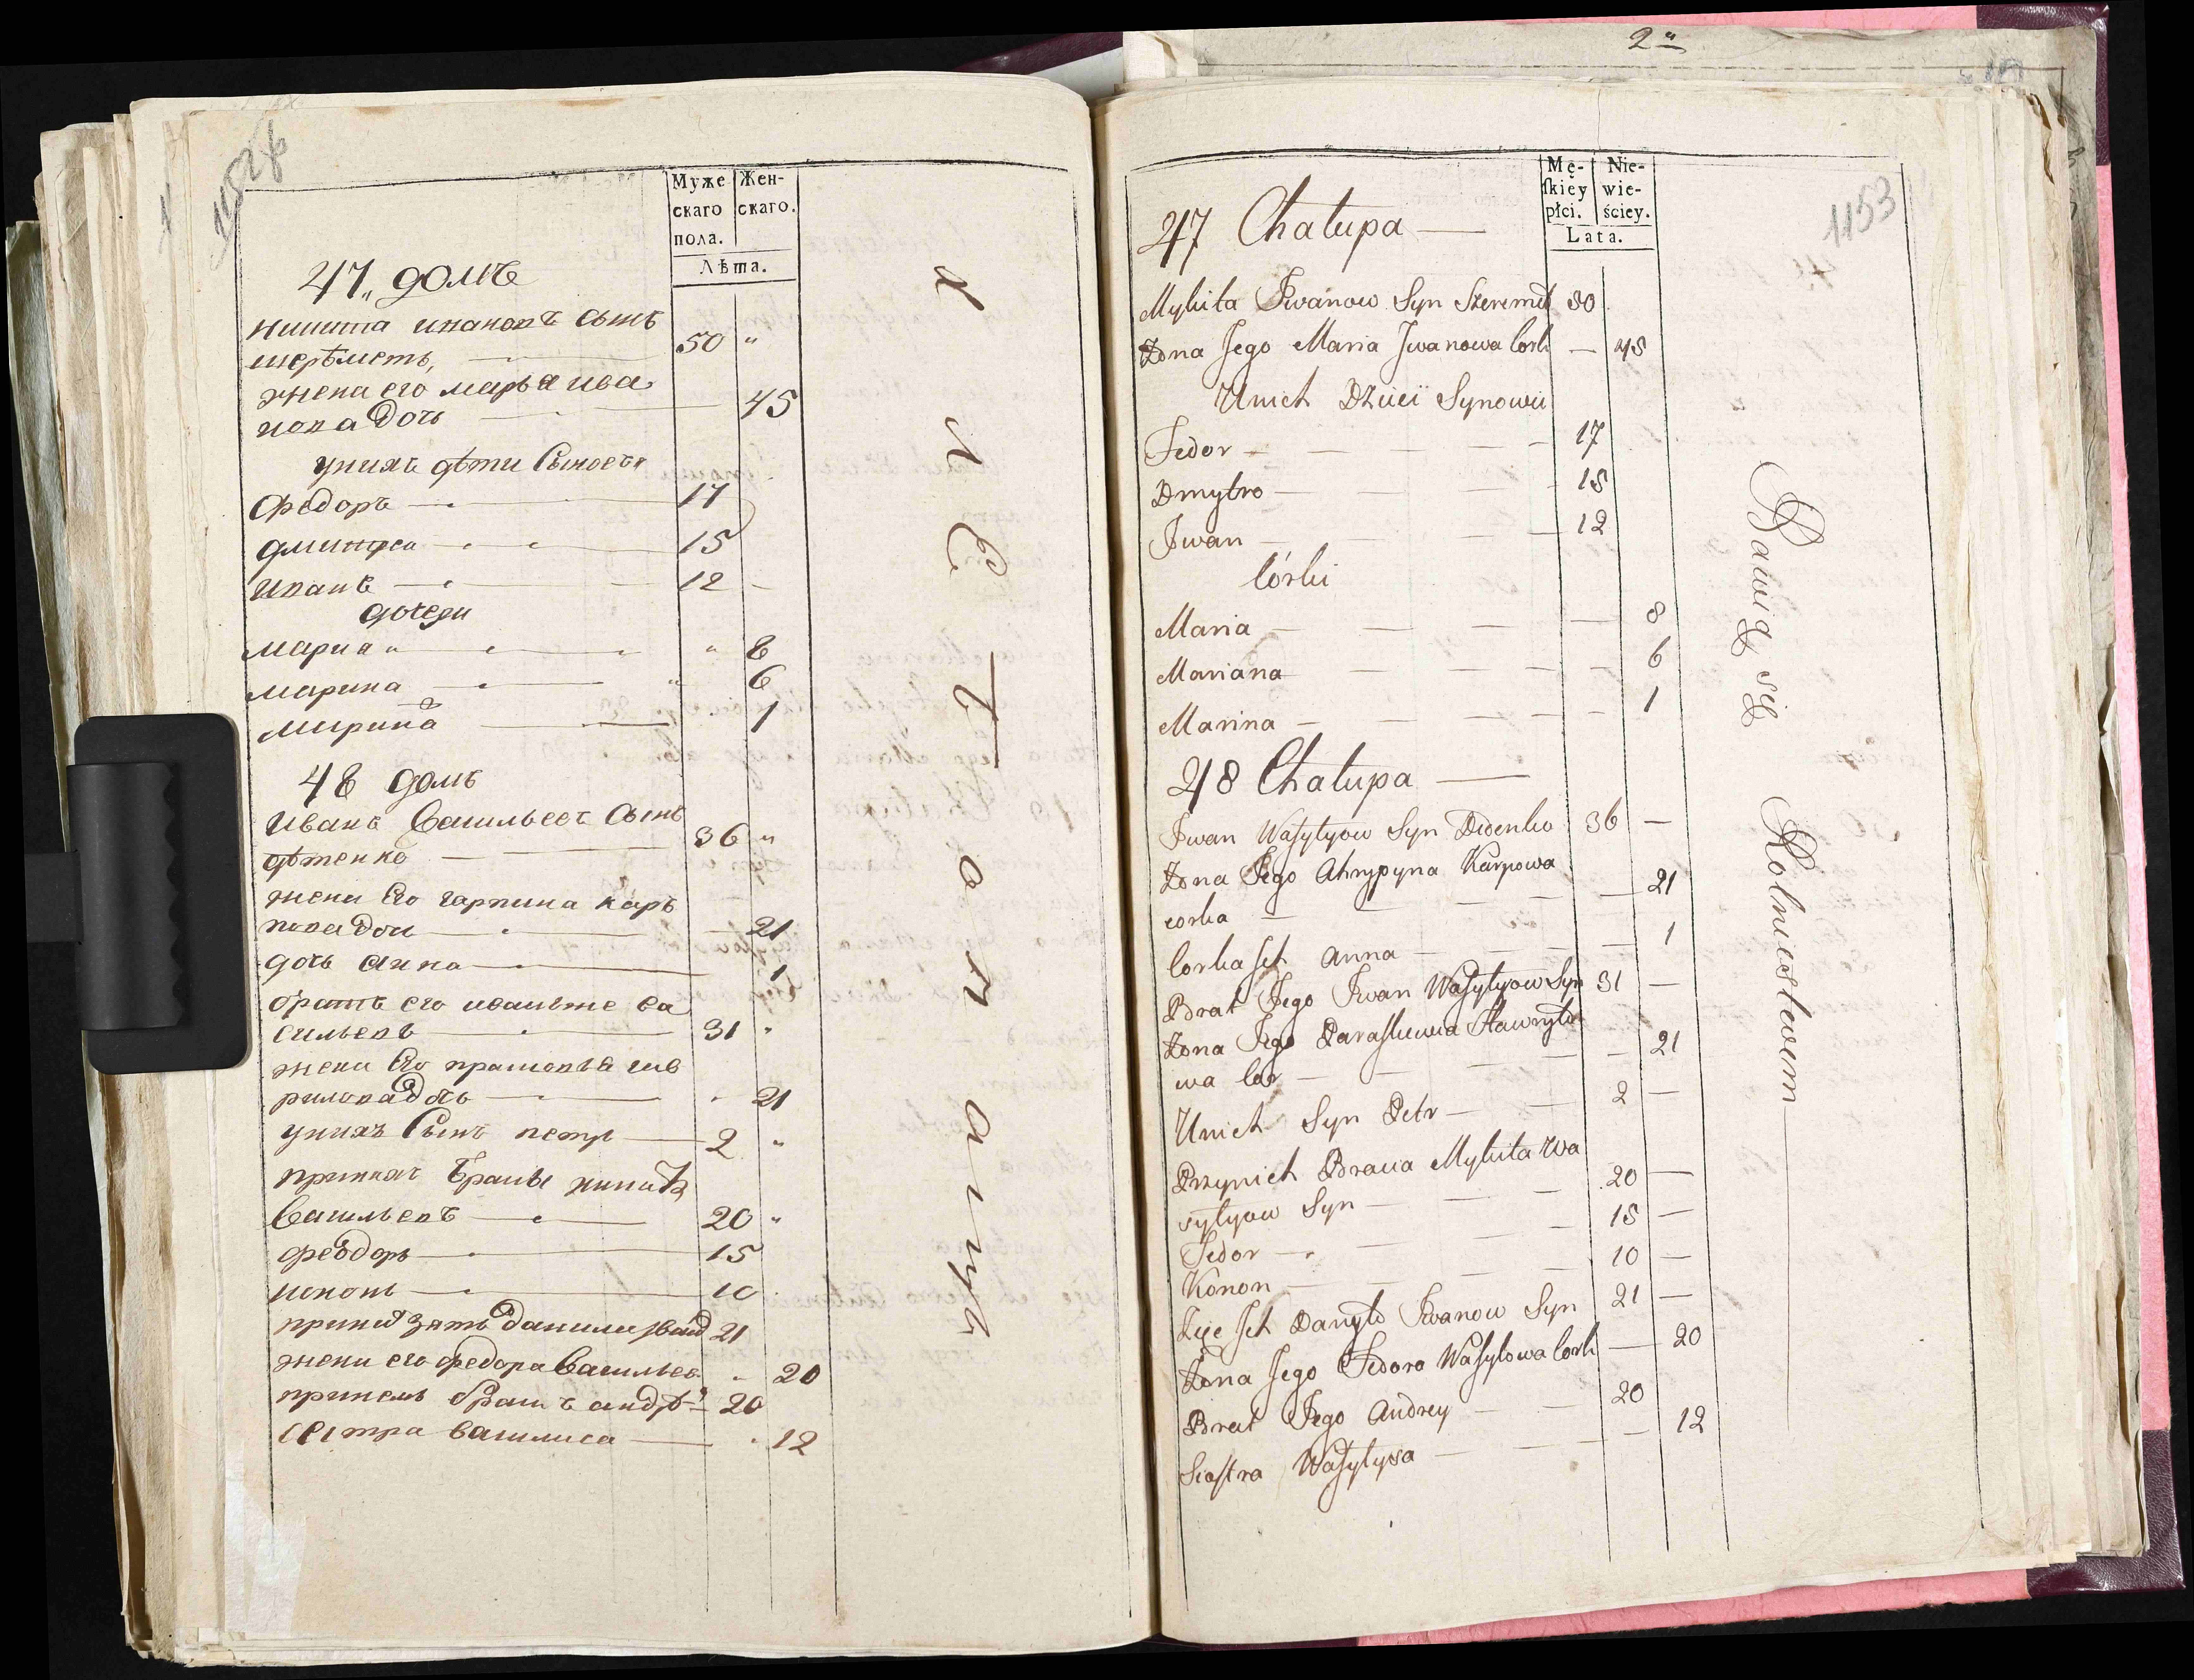 1152 об
Муже
скаго
пола.
Жен-
скаго.
Лѣта.
47 „ домъ
никита ивановъ сынъ
шерѣметь, — 50 „
жена его марья ива
нова дочь — 45
у нихъ дѣти сыновья
Федоръ — 17
дмитреи — 15
иванъ — 12 —
дочери
мария „ — „ 8
марина — „ 6
мирина — 1
48 домъ
иванъ васильевъ сынъ
дѣтенко — 36 „
жена его гарпина карь
пова дочь — 21
дочь анна — 1
братъ его иванъ же ва
сильевъ — 31 „
жена его прасковья гав
рилова дочь — „ 21
у нихъ сынъ петръ — 2 „
при нихъ братья никита
васильевъ — 20 „
феодоръ — 15
конон — 10
при них зять данила иванов 21
жена его федора васильев „ 20
при нем братъ андрѣй 20
сестра василиса — „ 12
хлебопашцы
2 „
1153
Mę-
ſkiéy
płci.
Nie-
wie-
ściey.
Lata.
47 Chałupa —
Mykita Jwanow Syn Szeremet 50
Żona Jego Maria Jwanowa Cork — 45
U nich Dzieci Synowii
Fedor — 17
Dmytro — 15
Jwan — 12
Córki
Maria — 8
Mariana — 6
Marina — 1
48 Chałupa —
Jwan Wasylyow Syn Didenko 36 —
Żona Jego Ahrypyna Karpowa
corka — 21
Corka Jch Anna — 1
Brat Jego Jwan Wasylyow Syn 31 —
Żona Jego Paraskewia Hawryło
wa Cor — 21
U nich Syn Petr — 2 —
Przy nich Bracia Mykita Wa
sylyow Syn — 20 —
Fedor — 15 —
Konon — 10 —
Zięć Jch Danyło Jwanow Syn 21 —
Żona Jego Fedora Wasylowa Cork — 20
Brat Jego Andrey — 20
Siostra Wasylysa — 12
Bawią się Rolnictwem —